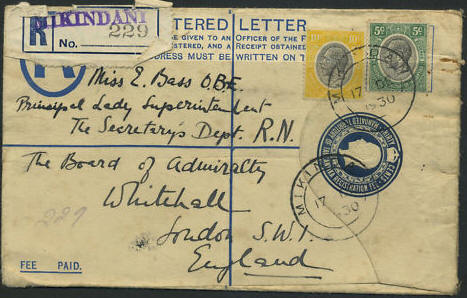 MIKINDANI
R
No. 229
TERED LETTER.
BE GIVEN TO AN OFFICER OF THE
ISTERED, AND A RECEIPT OBTAINED
DRESS MUST BE WRITTEN ON
10c
5c
MIKINDANI
17
1930
Miss E. Bass O.B.E.
Principal Lady Superintendent
The Secretary's Dept. R.N.
The Board of Admiralty
Whitehall
London S.W.1.
England
REGISTRATION FEE
MIKIN
17
30
229
FEE PAID.